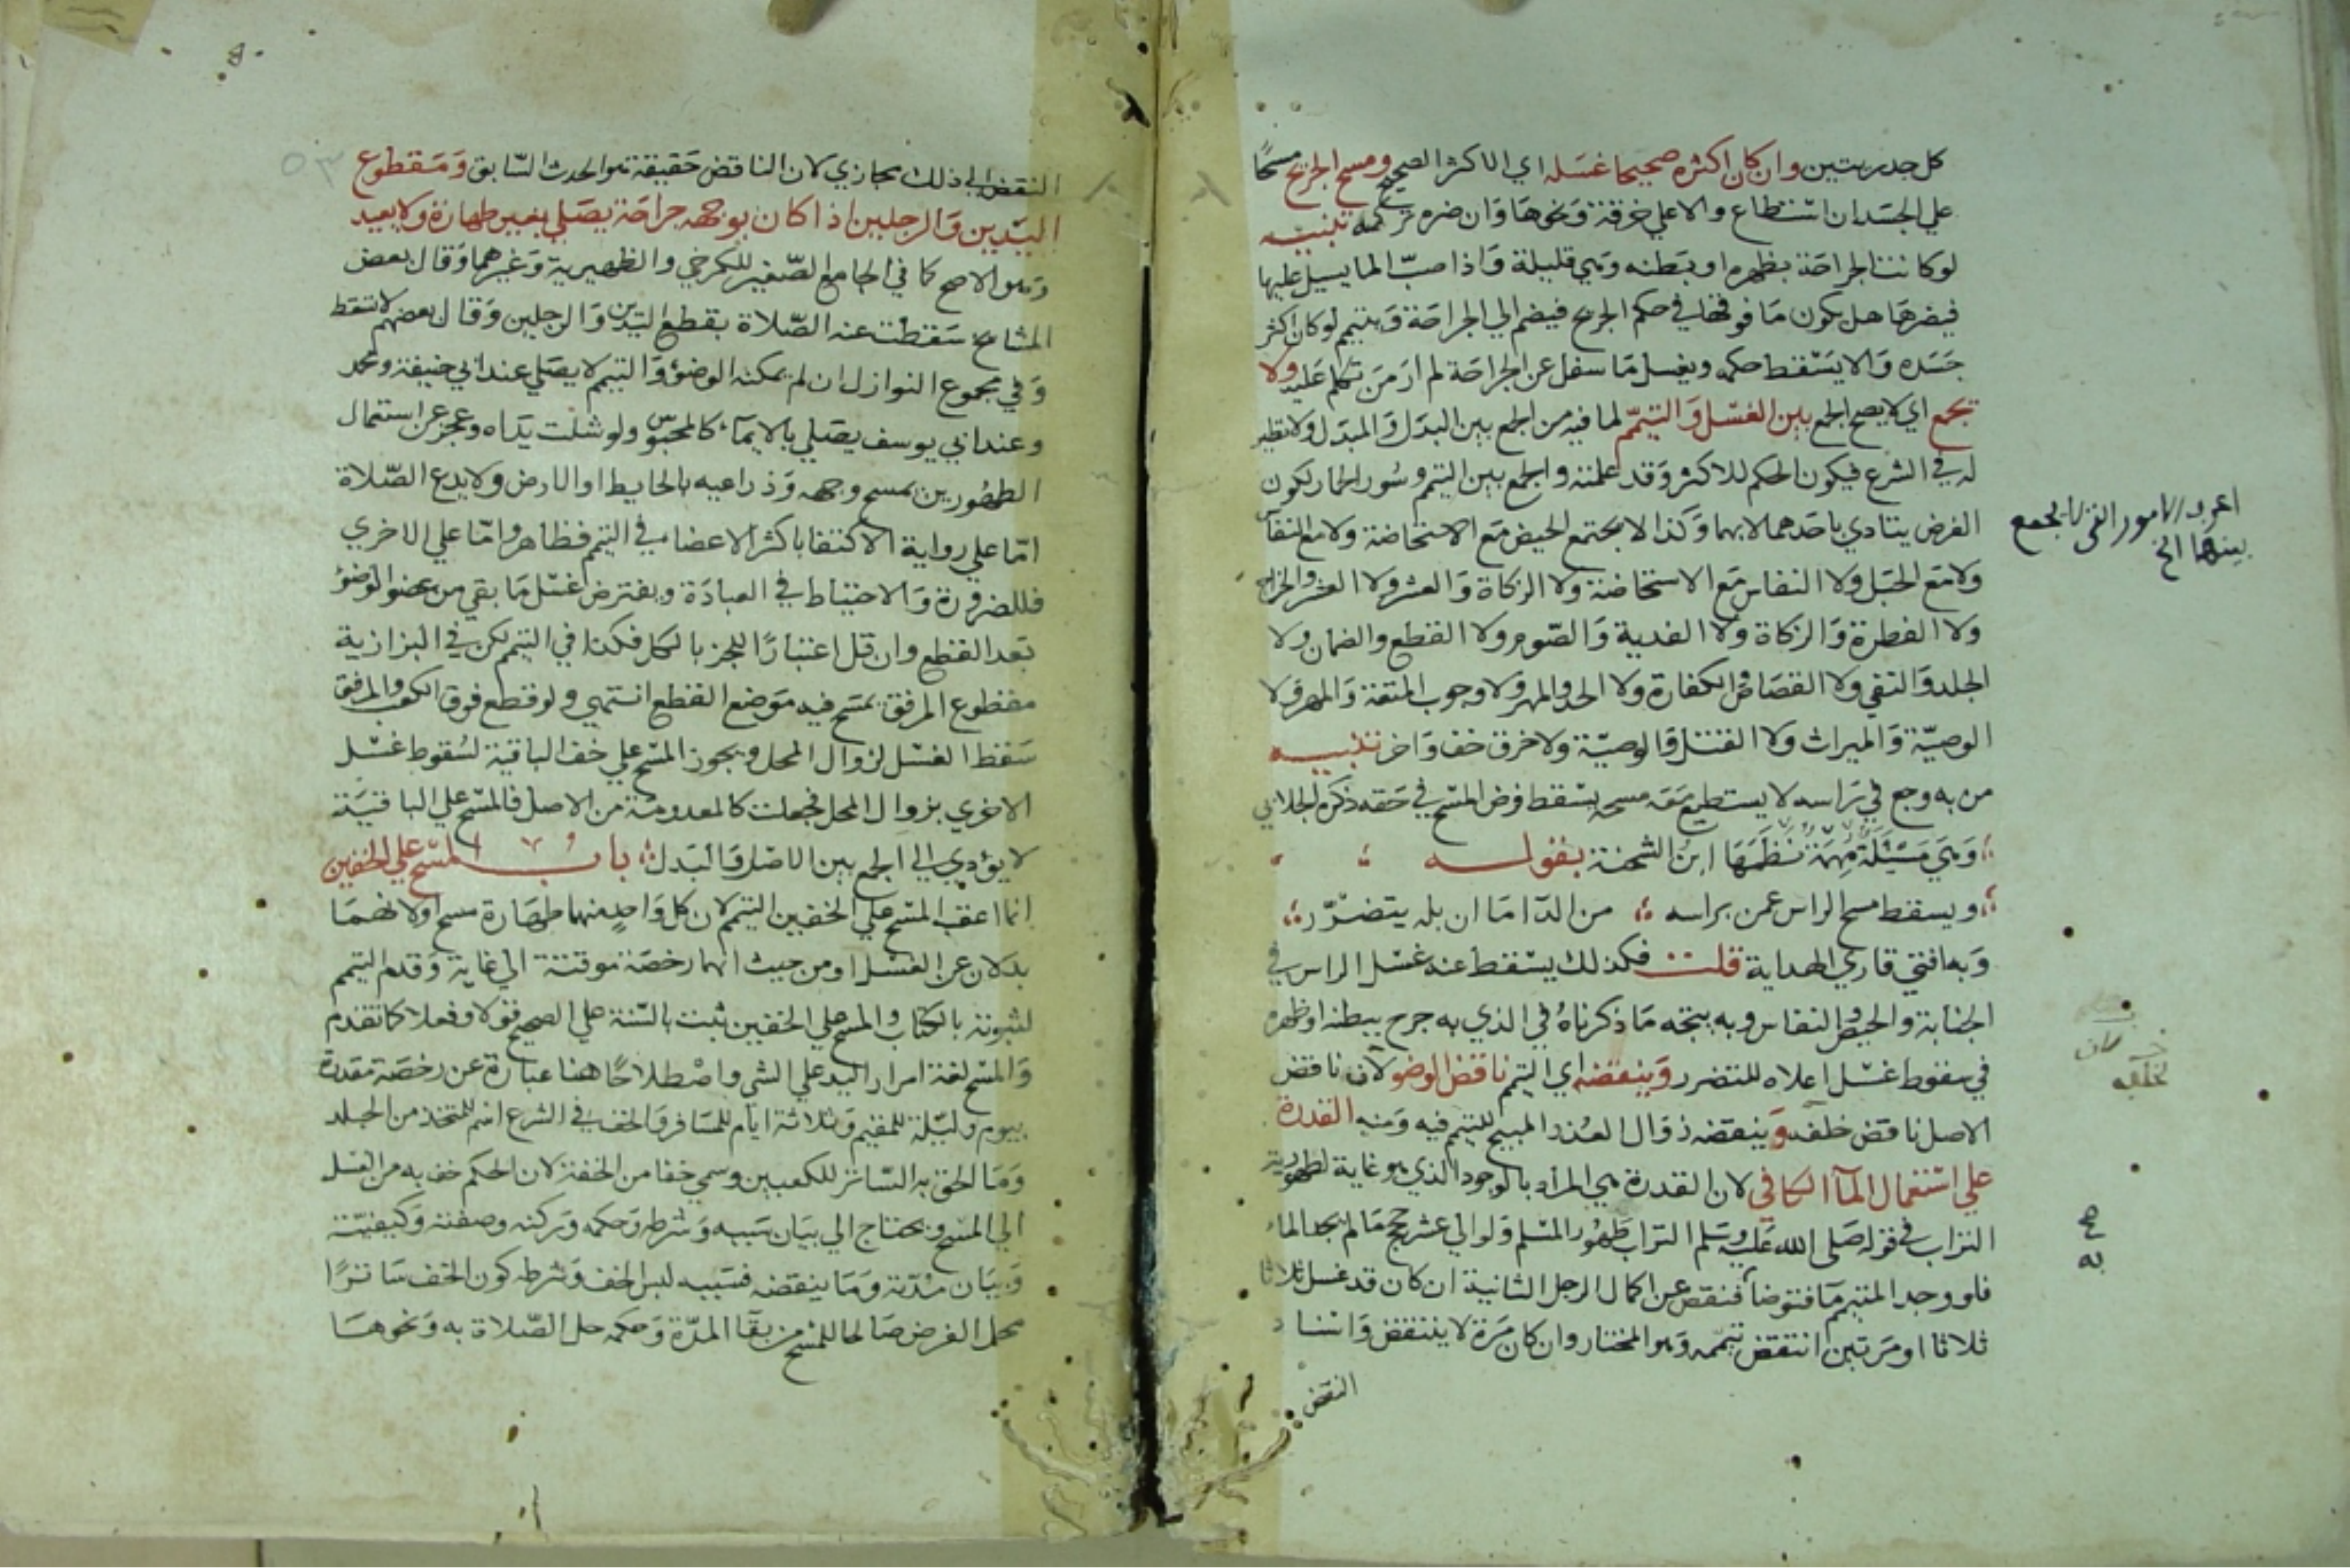 كل جدريتين وان كان اكثره صحيحا غسله اي الاكثر الصحيح ومسح الجريح مسحًا
علي الجسد ان استطاع والا علي خرقة ونحوها وان ضره تركه تنبيه
لو كانت الجراحة بظهره او بطنه وهي قليلة واذا صبّ الما يسيل عليها
فيضرها هل يكون ما فوقها في حكم الجريح فيضم الي الجراحة ويتيمم لو كان اكثر
جسده والا يسقط حكمه ويغسل ما سفل عن الجراحة لم ار من تكلم عليه ولا
يجمع اي لا يصح الجمع بين الغسل والتيمّم لما فيه من الجمع بين البدل والمبدل ولا نظير
له في الشرع فيكون الحكم للاكثر وقد علمته والجمع بين التيمم وسُور الحمار لكون
الفرض يتادي باحدهما لا بهما وكذا لا يجتمع الحيض مع الاستحاضة ولا مع النفاس
ولا مع الحبل ولا النفاس مع الاستحاضة ولا الزكاة والعشر ولا العشر والخراج
ولا الفطرة والزكاة ولا الفدية والصّوم ولا القطع والضمان ولا
الجلد والنفي ولا القصاص والكفارة ولا الحد والمهر ولا وجوب المتعة والمهر ولا
الوصيّة والميراث ولا القتل والوصيّة ولا خرق خف واخر تنبيه
من به وجع في راسه لا يستطيع معه مسحه يسقط فرض المسح في حقه ذكره الجلابي
وهي مسئلة مهمة نظمها ابن الشحنة بقوله
ويسقط مسح الراس عمن براسه من الدآ ما ان بله يتضرّر
وبه افتي قاري الهداية قلت فكذلك يسقط عنه غسل الراس في
الجنابة والحيض والنفاس وبه يتجه ما ذكرناهُ في الذي به جرح ببطنه او ظهره
في سقوط غسل اعلاه للتضرر وينقضه اي التيمم ناقض الوضو لان ناقض
الاصل ناقض خلفه وينقضه زوال العذر المبيح للتيمم فيه ومنه القدرة
علي استعمال المآ الكافي لان القدرة هي المراد بالوجود الذي هو غاية لطهورية
التراب في قوله صلى الله عليه وسلم التراب طهُور المسلم ولو الي عشر حجج ما لم يجد الماء
فلو وجد المتيمم ما فتوضا فنقص عن اكمال الرجل الثانية ان كان قد غسل ثلاثا
ثلاثا او مرتين انتقض تيممه وهو المختار وان كان مرة لا ينتقض واسناد
النقض
اعرف الامور التي لا يجمع
بينهما الخ
النقض الي ذلك مجازي لان الناقض حقيقة هو الحدث السّابق ومقطوع
اليدين والرجلين اذا كان بوجهه جراحة يصلي بغير طهارة ولا يعيد
وهو الاصح كما في الجامع الصّغير للكرخي والظهيرية وغيرهما وقال بعض
المشايخ سقطت عنه الصّلاة بقطع اليدين والرجلين وقال بعضهم لا تسقط
وفي مجموع النوازل ان لم يمكنه الوضؤ والتيمم لا يصلي عند ابي حنيفة ومحمد
وعند ابي يوسف يصلي بالايمآء كالمحبوس ولو شلت يداه وعجز عن استعمال
الطهُورين يمسح وجهه وذراعيه بالحايط او الارض ولا يدع الصّلاة
امّا علي رواية الاكتفا باكثر الاعضا في التيمم فظاهر وامّا علي الاخري
فللضرورة والاحتياط في العبادة ويفترض غسل ما بقي من عضو الوضوُ
بعد القطع وان قل اعتبارًا للجز بالكل فكذا في التيمم لكن في البزازية
مقطوع المرفق يمسح فيه موضع القطع انتهي ولو قطع فوق الكعب والمرفق
سقط الغسل لزوال المحل ويجوز المسح علي خف الباقية لسُقوط غسل
الاخري بزوال المحل فجعلت كالمعدومة من الاصل فالمسح علي الباقية
لا يؤدي الي الجمع بين الاصل والبدل باب المسح علي الخفين
انما اعقب المسح علي الخفين التيمم لان كل واحدٍ منهما طهارة مسح اولا نهما
بدلان عن الغسل او من حيث انهما رخصة موقتة الي غاية وقدم التيمم
لثبوته بالكتاب والمسح علي الخفين ثبت بالسّنة علي الصحيح قولا وفعلا كما تقدم
والمسح لغة امرار اليد علي الشي واصطلاحًا هنا عبارة عن رخصة مقدرة
بيوم وليلة للمقيم وثلاثة ايام للمسافر والخف في الشرع اسم للمتخذ من الجلد
وما الحق به السّاتر للكعبين وسمي خفا من الخفة لان الحكم خف به من الغسل
الي المسح ويحتاج الي بيان سببه وشرطه وحكمه وركنه وصفته وكيفيّته
وبيان مدّته وما ينقضه فسببه لبس الخف وشرطه كون الخف ساترًا
محل الفرض صالحا للمسح مع بقآ المدّة وحكمه حل الصّلاة به ونحوها